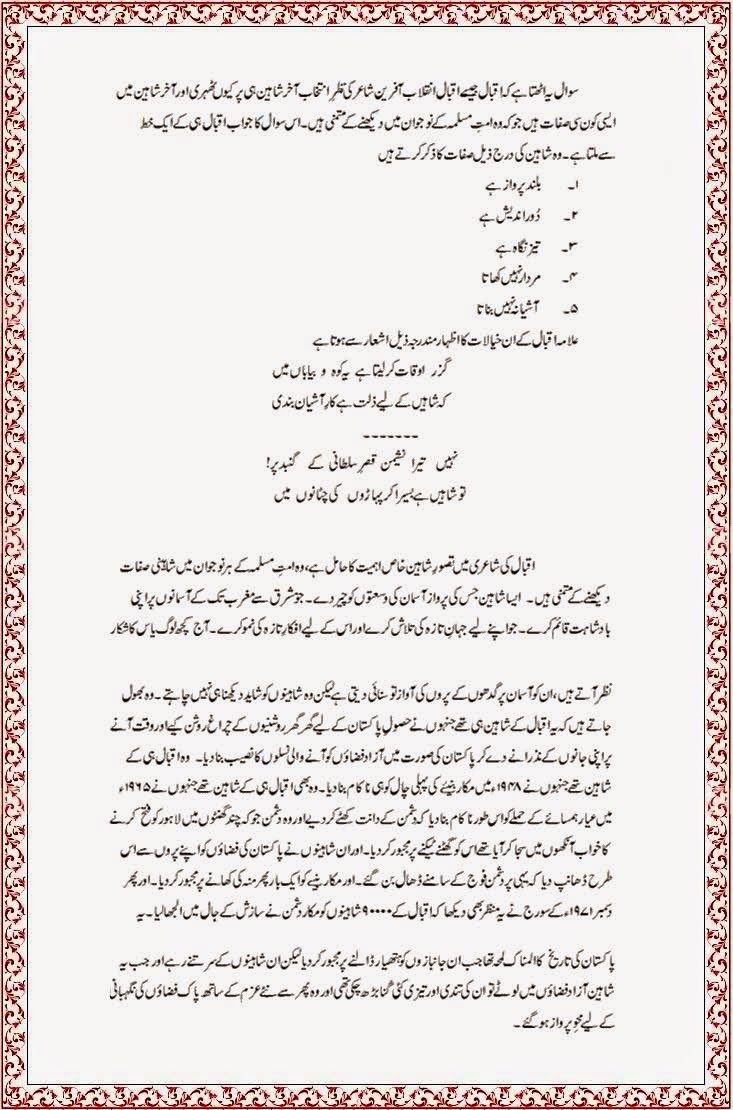 سوال یہ اٹھتا ہے کہ اقبال جیسے اقبال انقلاب آفرین شاعر کی نظرِ انتخاب آخر شاہین ہی پر کیوں ٹھہری اور آخر شاہین میں
ایسی کون سی صفات ہیں جو کہ وہ امتِ مسلمہ کے نوجوان میں دیکھنے کے متمنی ہیں۔ اس سوال کا جواب اقبال ہی کے ایک خط
سے ملتا ہے۔ وہ شاہین کی درج ذیل صفات کا ذکر کرتے ہیں
۱۔ بلند پرواز ہے
۲۔ دُور اندیش ہے
۳۔ تیز نگاہ ہے
۴۔ مردار نہیں کھاتا
۵۔ آشیانہ نہیں بناتا
علامہ اقبال کے ان خیالات کا اظہار مندرجہ ذیل اشعار سے ہوتا ہے
گزر اوقات کر لیتا ہے یہ کوہ و بیاباں میں
کہ شاہیں کے لیے ذلت ہے کارِ آشیان بندی
-------
نہیں تیرا نشیمن قصرِ سلطانی کے گنبد پر!
تو شاہیں ہے بسیرا کر پہاڑوں کی چٹانوں میں
اقبال کی شاعری میں تصورِ شاہین خاص اہمیت کا حامل ہے، وہ امتِ مسلمہ کے ہر نوجوان میں شاہینی صفات
دیکھنے کے متمنی ہیں۔ ایسا شاہین جس کی پرواز آسمان کی وسعتوں کو چیر دے۔ جو مشرق سے مغرب تک کے آسمانوں پر اپنی
بادشاہت قائم کرے۔ جو اپنے لیے جہانِ تازہ کی تلاش کرے اور اس کے لیے افکارِ تازہ کی نمو کرے۔ آج کچھ لوگ یاس کا شکار
نظر آتے ہیں، ان کو آسمان پر گدھوں کے پروں کی آواز تو سنائی دیتی ہے لیکن وہ شاہینوں کو شاید دیکھنا ہی نہیں چاہتے۔ وہ بھول
جاتے ہیں کہ یہ اقبال کے شاہین ہی تھے جنہوں نے حصولِ پاکستان کے لیے گھر گھر روشنیوں کے چراغ روشن کیے اور وقت آنے
پر اپنی جانوں کے نذرانے دے کر پاکستان کی صورت میں آزاد فضاؤں کو آنے والی نسلوں کا نصیب بنا دیا۔ وہ اقبال ہی کے
شاہین تھے جنہوں نے ۱۹۴۸ء میں مکار بنیئے کی پہلی چال کو ہی ناکام بنا دیا۔ وہ بھی اقبال ہی کے شاہین تھے جنہوں نے ۱۹۶۵ء
میں عیار ہمسائے کے حملے کو اس طور ناکام بنا دیا کہ دشمن کے دانت کھٹے کر دیے اور وہ دشمن جو کہ چند گھنٹوں میں لاہور کو فتح کرنے
کا خواب آنکھوں میں سجا کر آیا تھے اس کو گھٹنے ٹیکنے پر مجبور کر دیا۔ اور ان شاہینوں نے پاکستان کی فضاؤں کو اپنے پروں سے اس
طرح ڈھانپ دیا کہ یہی پر دشمن فوج کے سامنے ڈھال بن گئے۔ اور مکار بنیے کو ایک بار پھر منہ کی کھانے پر مجبور کر دیا۔ اور پھر
دسمبر ۱۹۷۱ء کے سورج نے یہ منظر بھی دیکھا کہ اقبال کے ۹۰۰۰۰ شاہینوں کو مکار دشمن نے سازش کے جال میں الجھا لیا۔ یہ
پاکستان کی تاریخ کا المناک لمحہ تھا جب ان جانبازوں کو ہتھیار ڈالنے پر مجبور کر دیا لیکن ان شاہینوں کے سر تنے رہے اور جب یہ
شاہین آزاد فضاؤں میں لوٹے تو ان کی تندی اور تیزی کئی گنا بڑھ چکی تھی اور وہ پھر سے نئے عزم کے ساتھ پاک فضاؤں کی نگہبانی
کے لیے محوِ پرواز ہو گئے۔